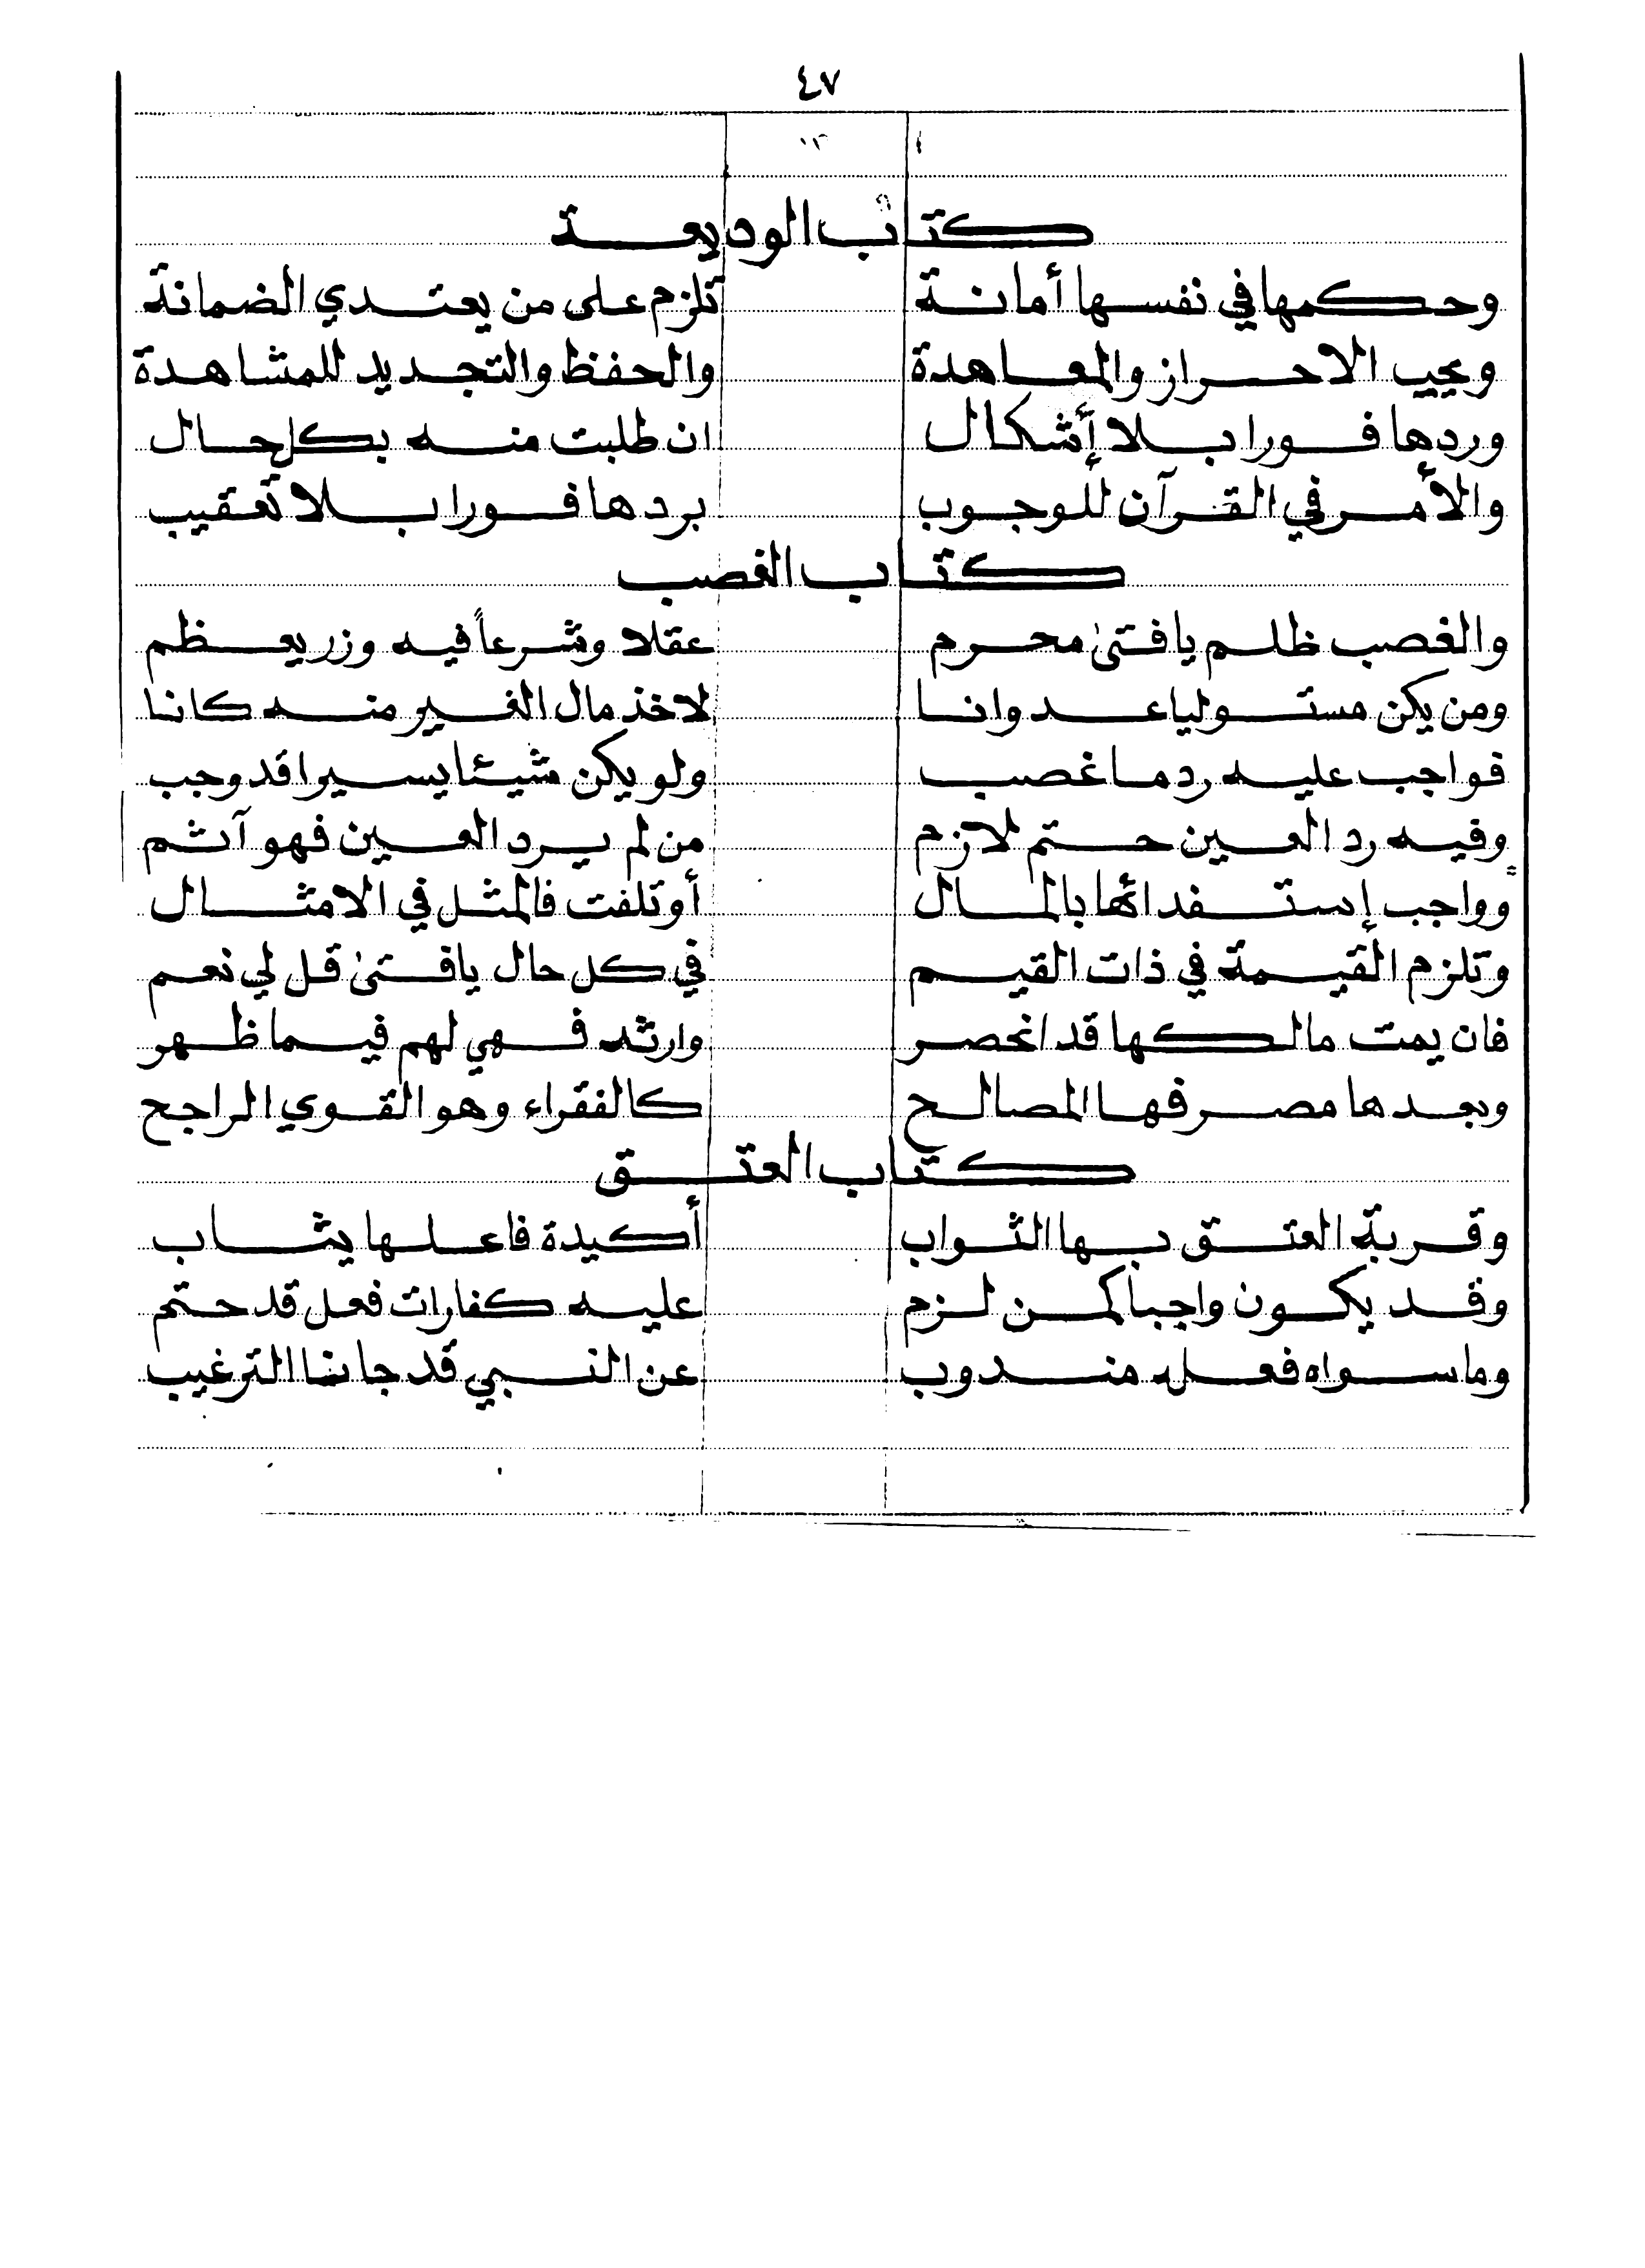 ٤٧
كتاب الوديعة
وحكمها في نفسها أمانة تلزم على من يعتدي الضمانة
ويجيب الاحراز والمعاهدة والحفظ والتجديد للمشاهدة
وردها فورا بلا إشكال ان طلبت منه بكل حال
والأمر في القرآن للوجوب بردها فورا بلا تعقيب
كتاب الغصب
والغصب ظلم يا فتى محرم عقلا وشرعاً فيه وزر يعظم
ومن يكن مستوليا عدوانا لاخذ مال الغير منه كانا
فواجب عليه رد ما غصب ولو يكن شيئا يسيرا قد وجب
وفيه رد العين حتم لازم من لم يرد العين فهو آثم
وواجب إستفدائها بالمال أو تلفت فالمثل في الامثال
وتلزم القيمة في ذات القيم في كل حال يا فتى قل لي نعم
فان يمت مالكها قد انحصر وارثه فهي لهم فيما ظهر
وبعدها مصرفها المصالح كالفقراء وهو القوي الراجح
كتاب العتق
وقربة العتق بها الثواب أكيدة فاعلها يثاب
وقد يكون واجبا كمن لزم عليه كفارات فعل قد حتم
وما سواه فعله مندوب عن النبي قد جاءنا الترغيب